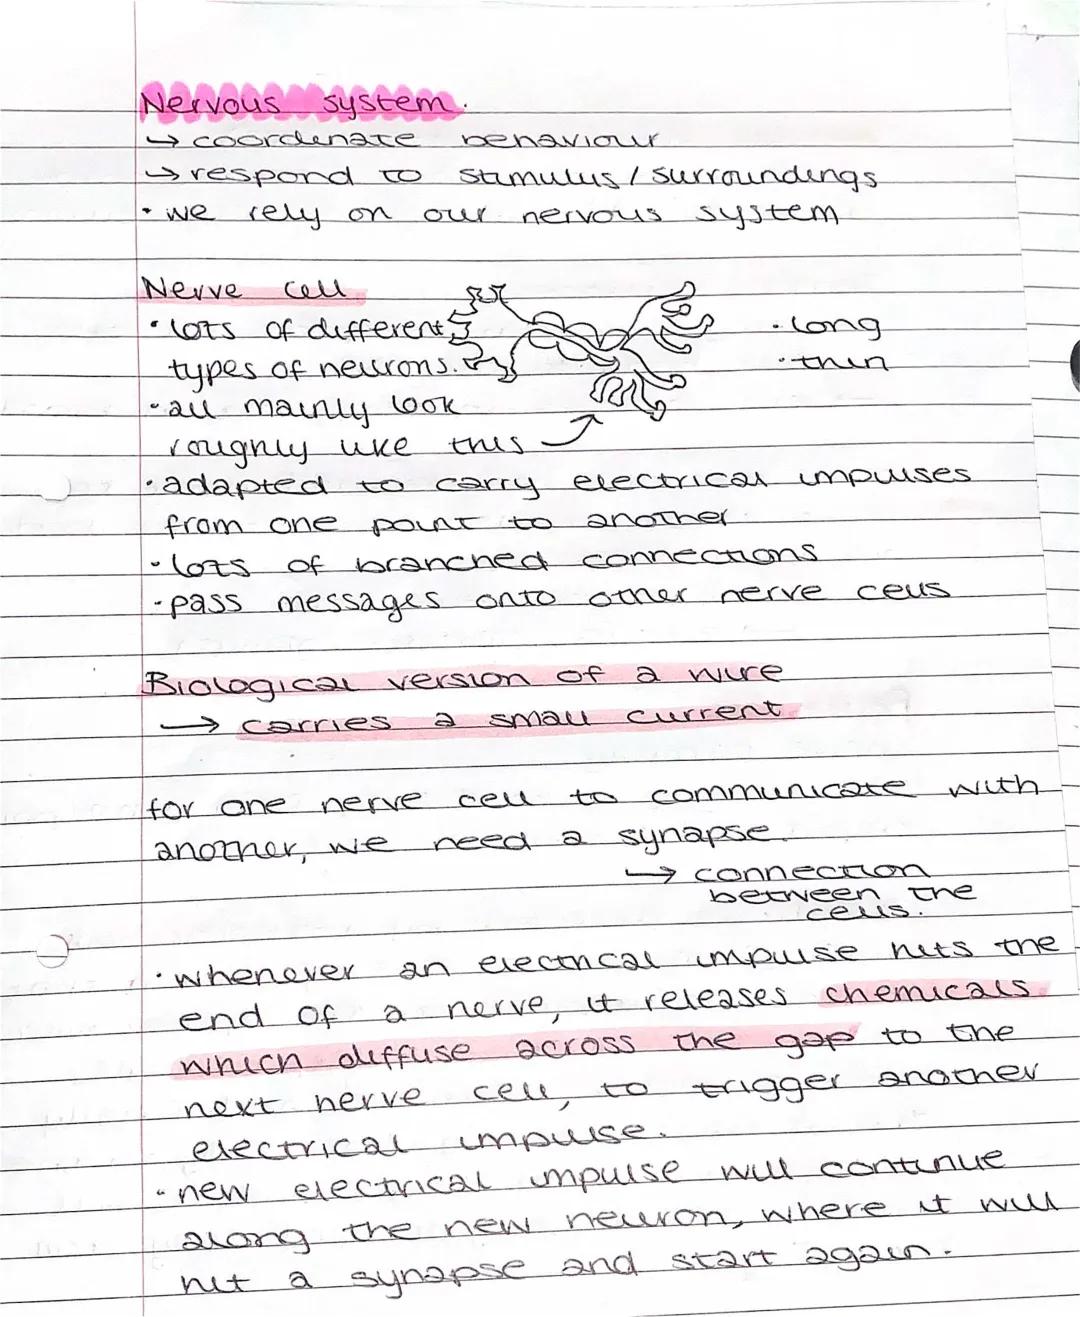 Nervous system.
→ coordinate behaviour
→ respond to stimulus / surroundings
• we rely on our nervous system
Nerve cell
• lots of different
types of neurons.
• all mainly look
roughly like this
• long
• thin
• adapted to carry electrical impulses
from one point to another
• lots of branched connections
• pass messages onto other nerve cells
Biological version of a wire
→ carries a small current
for one nerve cell to communicate with
another, we need a synapse.
→ connection
between the
cells.
• whenever an electrical impulse hits the
end of a nerve, it releases chemicals
which diffuse across the gap to the
next nerve cell, to trigger another
electrical impulse.
• new electrical impulse will continue
along the new neuron, where it will
hit a synapse and start again.